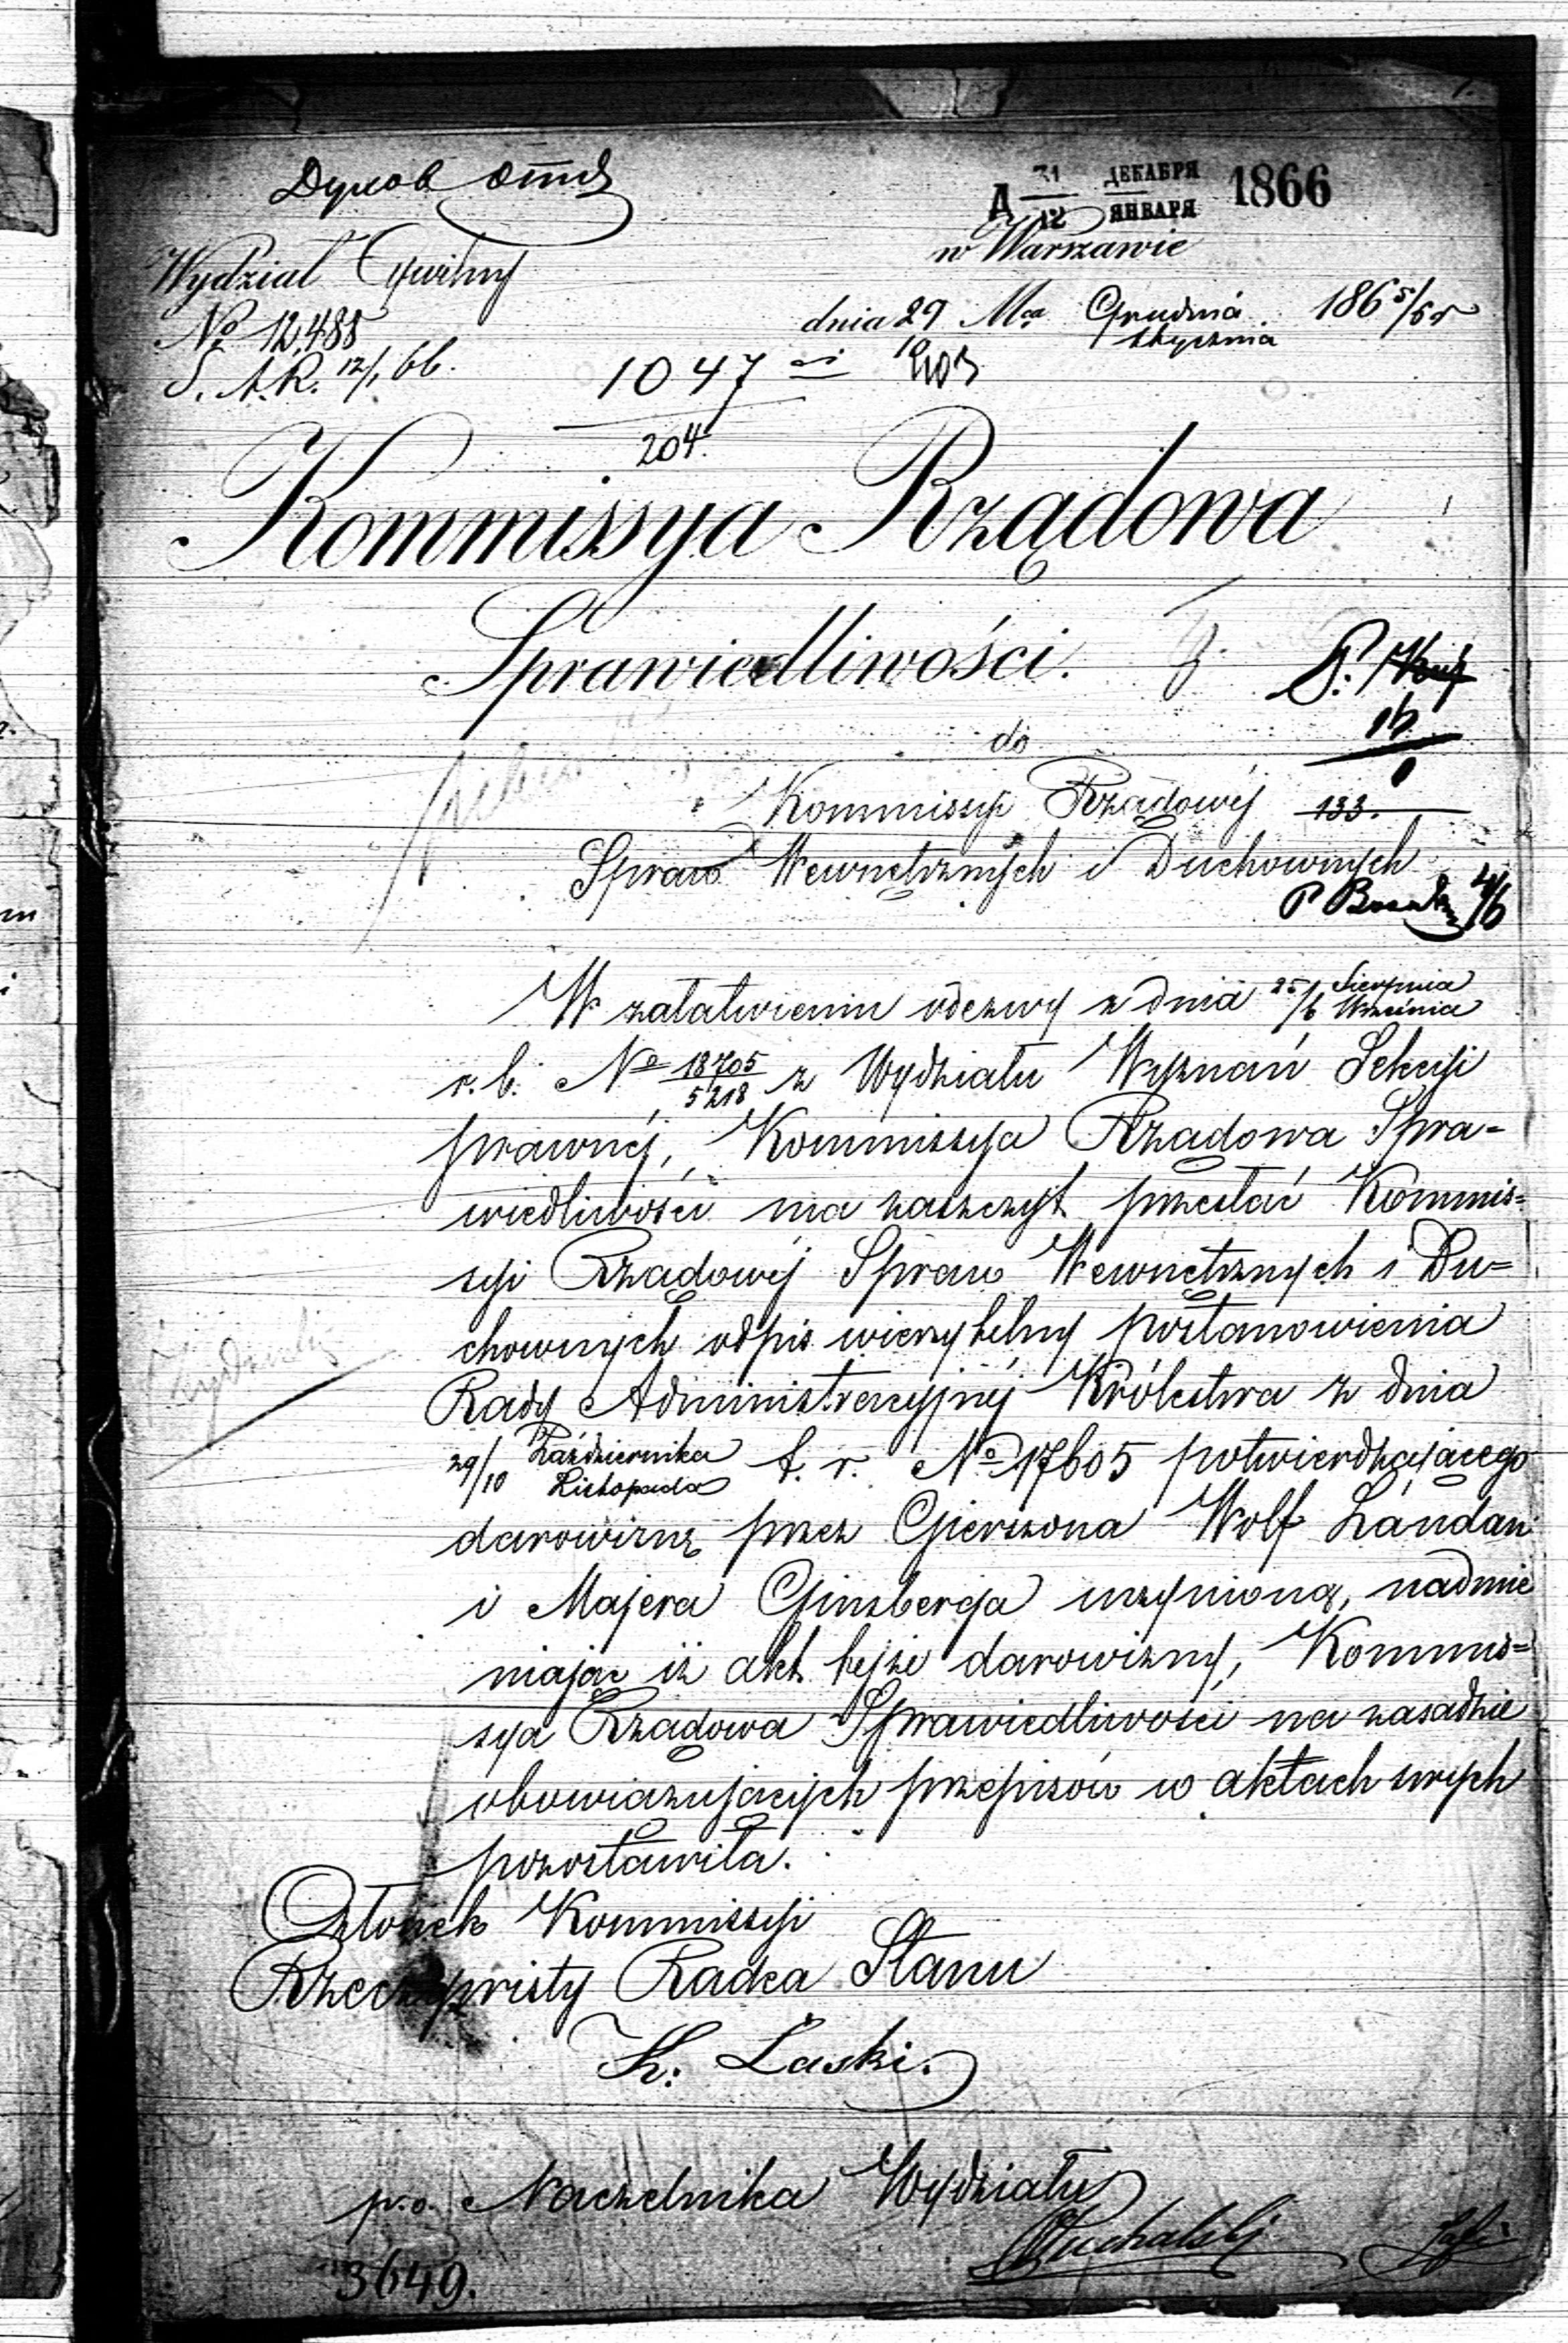 Духов отд
Д 31/12 ДЕКАБРЯ/ЯНВАРЯ 1866
w Warszawie
Wydział Cywilny
No 12,488
dnia 29/10 Mca Grudnia/Stycznia 1865/6 r
S. A. R. 12/1 66.
1047 203
204.
Kommissya Rządowa
Sprawiedliwości.
do
Kommissyi Rządowéj
133.
Spraw Wewnętrznych i Duchownych
W załatwieniu odezwy z dnia 25/6 Sierpnia/Września
r. b. No 18705/5218 z Wydziału Wyznań Sekcyi
prawnéj, Kommissya Rządowa Spra=
wiedliwości ma zaszczyt przesłać Kommis=
syi Rządowéj Spraw Wewnętrznych i Du=
chownych odpis wierzytelny postanowienia
Rady Administracyjnéj Królestwa z dnia
29/10 Października/Listopada t. r. No 17605 potwierdzającego
darowiznę przez Gierszona Wolf Landau
i Majera Ginzberga uczynioną, nadmie
niając iż akt tejże darowizny, Kommis=
sya Rządowa Sprawiedliwości na zasadzie
obowiązujących przepisów w aktach swych
pozostawiła.
Członek Kommissyi
Rzeczywisty Radca Stanu
K: Laski.
p.o. Naczelnika Wydziału
Puchalski
3649.